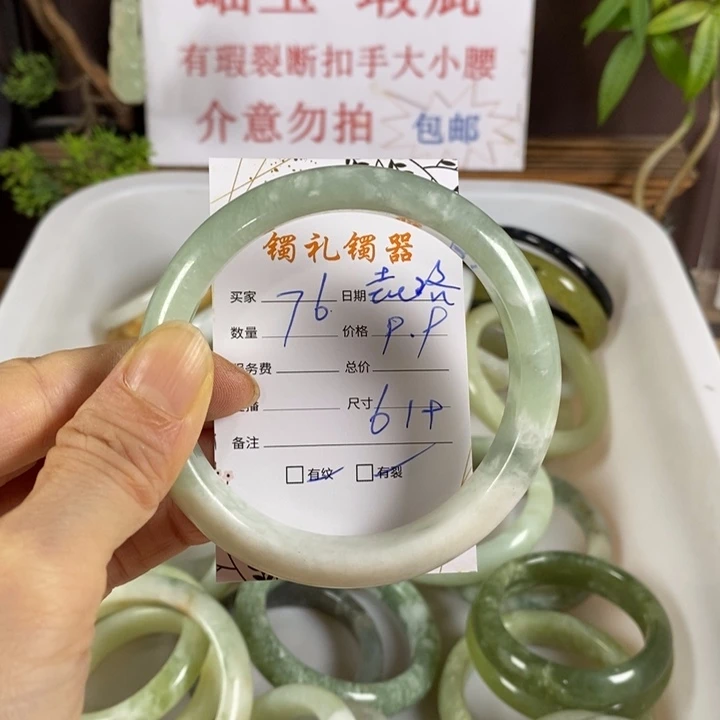 岫玉 瑕疵
有瑕裂断扣手大小腰
介意勿拍 包邮
镯礼镯器
买家 76 日期
数量 价格 P.P
服务费 总价
尺寸 61+
备注
有纹 有裂